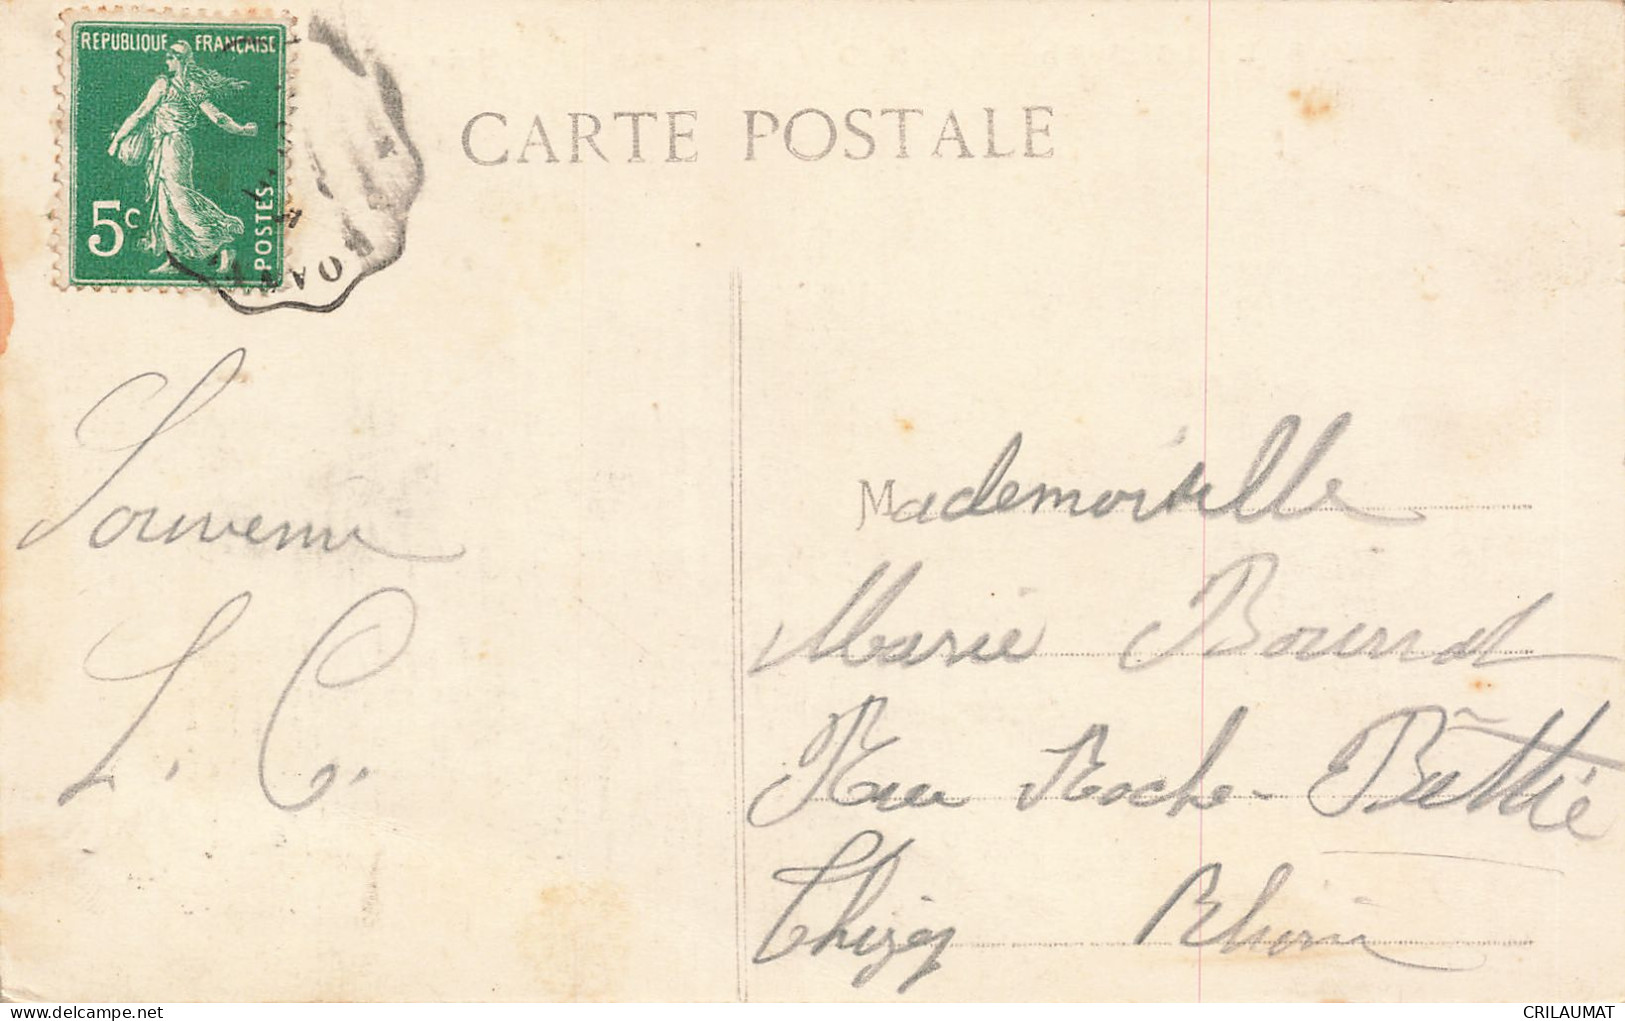 REPUBLIQUE FRANÇAISE
5c
POSTES
ROANN
CARTE POSTALE
Souvenir
L. C.
Mademoiselle
Marie Bourrat
Rue Roche-Buttie
Thizy Rhône
CRILAUMAT